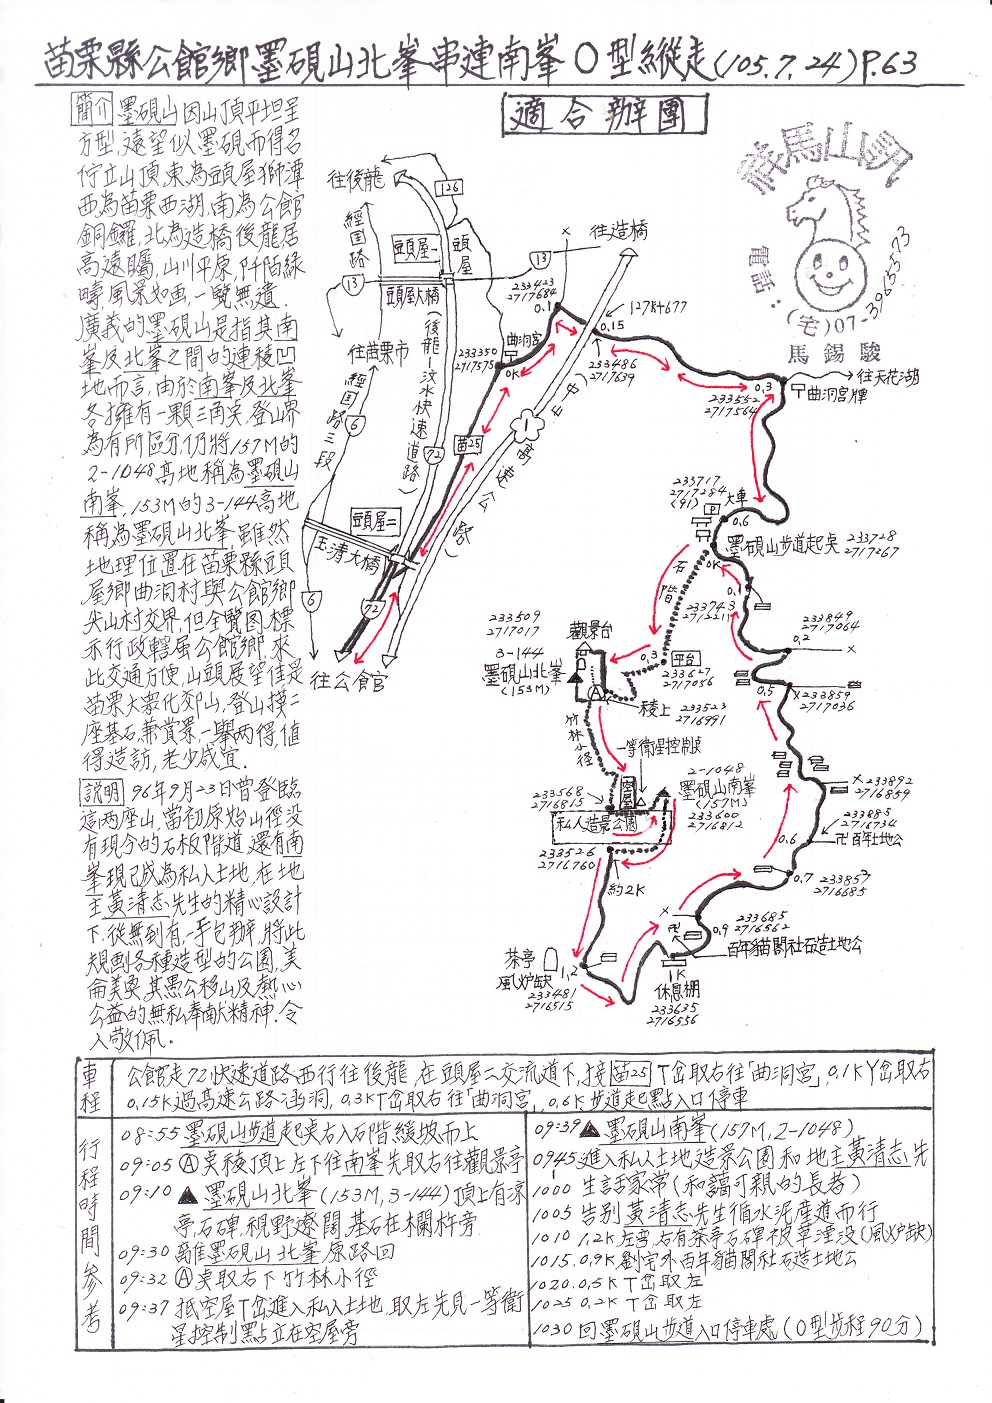 苗栗縣公館鄉墨硯山北峯串連南峯O型縱走(105.7.24)P.63
適合辦團
簡介 墨硯山因山頂平坦呈
方型,遠望似墨硯而得名
佇立山頂,東為頭屋獅潭
西為苗栗西湖,南為公館
銅鑼,北為造橋後龍居
高遠矚,山川平原,阡陌綠
疇,風景如画,一覽無遺.
廣義的墨硯山是指其南
峯及北峯之間的連稜凹
地而言,由於南峯及北峯
各擁有一顆三角点,登山界
為有所區分,仍將157M的
2-1048高地稱為墨硯山
南峯,153M的3-144高地
稱為墨硯山北峯,雖然
地理位置在苗栗縣頭
屋鄉曲洞村與公館鄉
尖山村交界,但全覽图標
示行政轄屬公館鄉,來
此交通方便,山頭展望佳是
苗栗大眾化郊山,登山摸二
座基石,兼賞景,一舉兩得,值
得造訪,老少咸宜.
説明 96年9月23日曾登臨
這兩座山,當初原始山徑没
有現今的石板階道,還有南
峯現已成為私人土地,在地
主黃清志先生的精心設計
下,從無到有,一手包辦,將此
規画各種造型的公園,美
侖美奐,其愚公移山及熱心
公益的無私奉献精神.令
人敬佩.
祥馬山訊
電話:(宅)07-3965573
馬錫駿
往後龍
126
經国路
頭屋一
頭屋
往造橋
13
13
頭屋大橋
往苗栗市
經国路三段
6
(後龍—汶水快速道路)
72
苗25
1
高速公路
(中山)
頭屋二
玉清大橋
6
72
往公館
233350
2717575
曲洞宮
0K
233423
2717684
0.1
127K+677
0.15
233486
2717639
0.3
233552
2717564
往天花湖
曲洞宮牌
233717
2717284
(91)
P
大車
0.6
墨硯山步道起点
233728
2717267
0K
石階
0.1
233743
2717211
233849
2717064
0.2
233509
2717017
觀景台
3-144
墨硯山北峯
(153M)
0.3
平台
233627
2717056
A
稜上
233523
2716991
0.5
233859
2717036
竹林小徑
一等衛星控制点
2-1048
墨硯山南峯
(157M)
233600
2716812
空屋
233568
2716815
私人造景公園
233526
2716760
約2K
233892
2716859
233885
2716734
百年土地公
0.6
0.7
233857
2716685
233685
2716562
0.9
百年貓閣社石造土地公
茶亭
風炉缺
1.2
233481
2716515
1K
休息棚
233635
2716556
車程
公館走72快速道路西行往後龍,在頭屋二交流道下,接苗25T岔取右往「曲洞宮」,0.1KY岔取右
0.15K過高速公路涵洞,0.3KT岔取右往「曲洞宮」,0.6K步道起點入口停車
行程時間參考
08:55墨硯山步道起点右入石階緩坡而上
09:05A点稜頂上左下往南峯先取右往觀景亭
09:10▲墨硯山北峯(153M,3-144)頂上有涼
亭,石碑,視野遼闊,基石在欄杆旁
09:30離墨硯山北峯原路回
09:32A点取右下竹林小徑
09:37抵空屋T岔進入私人土地,取左先見一等衛
星控制點立在空屋旁
09:39▲墨硯山南峯(157M,2-1048)
0945進入私人土地造景公園和地主黃清志先
1000生話家常(和藹可親的長者)
1005告別黃清志先生循水泥產道而行
1010 1.2K左弯,右有茶亭石碑被草湮没(風炉缺)
1015.0.9K劉宅外百年貓閣社石造土地公
1020.0.5KT岔取左
1025 0.2KT岔取左
1030回墨硯山步道入口停車處(O型步程90分)